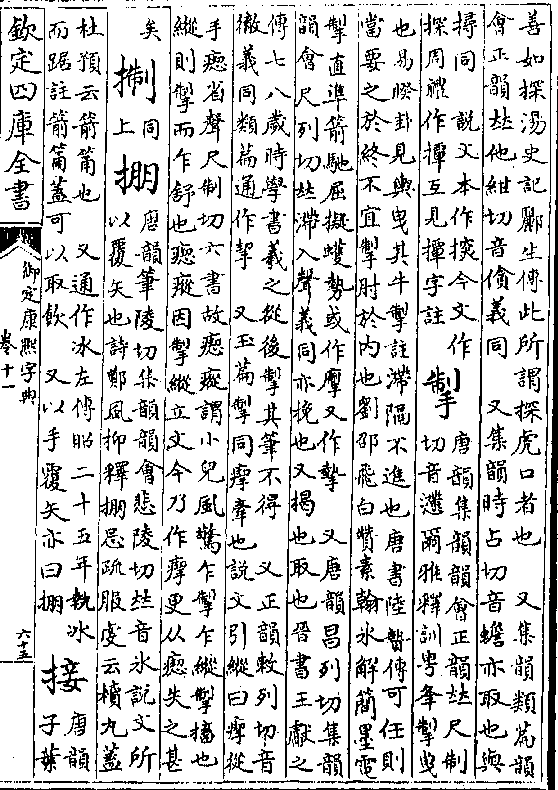 善如探湯史記酈生傳此所謂探虎口者也　又集韻類篇韻
會正韻𠀤他紺切音僋義同　又集韻時占切音蟾亦取也與
撏同　說文本作今文作
探周禮作撢互見撢字註
掣
唐韻集韻韻會正韻𠀤尺制
切音瀱爾雅釋訓甹夆掣曳
也易睽卦見輿曳其牛掣註滯隔不進也唐書陸贄傳可任則
當要之於終不宜掣肘於內也劉邵飛白贊素翰氷解簡墨電
掣直準箭馳屈擬蠖勢或作又作　又唐韻昌列切集韻
韻會尺列切𠀤滯入聲義同亦挽也又揭也取也晉書王獻之
傳七八歲時學書羲之從後掣其筆不得　又正韻敕列切音
徹義同類篇通作挈　又玉篇掣同牽也說文引縱曰從
手瘛省聲尺制切六書故瘛瘲謂小兒風驚乍掣乍縱掣搐也
縱則掣而乍舒也瘛瘲因掣縱立文今乃作更从瘛失之甚
矣
同
上
掤
唐韻筆陵切集韻韻會悲陵切𠀤音氷說文所
以覆矢也詩鄭風抑釋掤忌疏服虔云櫝丸蓋
杜預云箭筩也　又通作冰左傳昭二十五年執冰
而踞註箭筩蓋可以取飲　又以手覆矢亦曰掤
接
唐韻
子葉
欽定四庫全書
御定康熙字典
卷十一
六十五